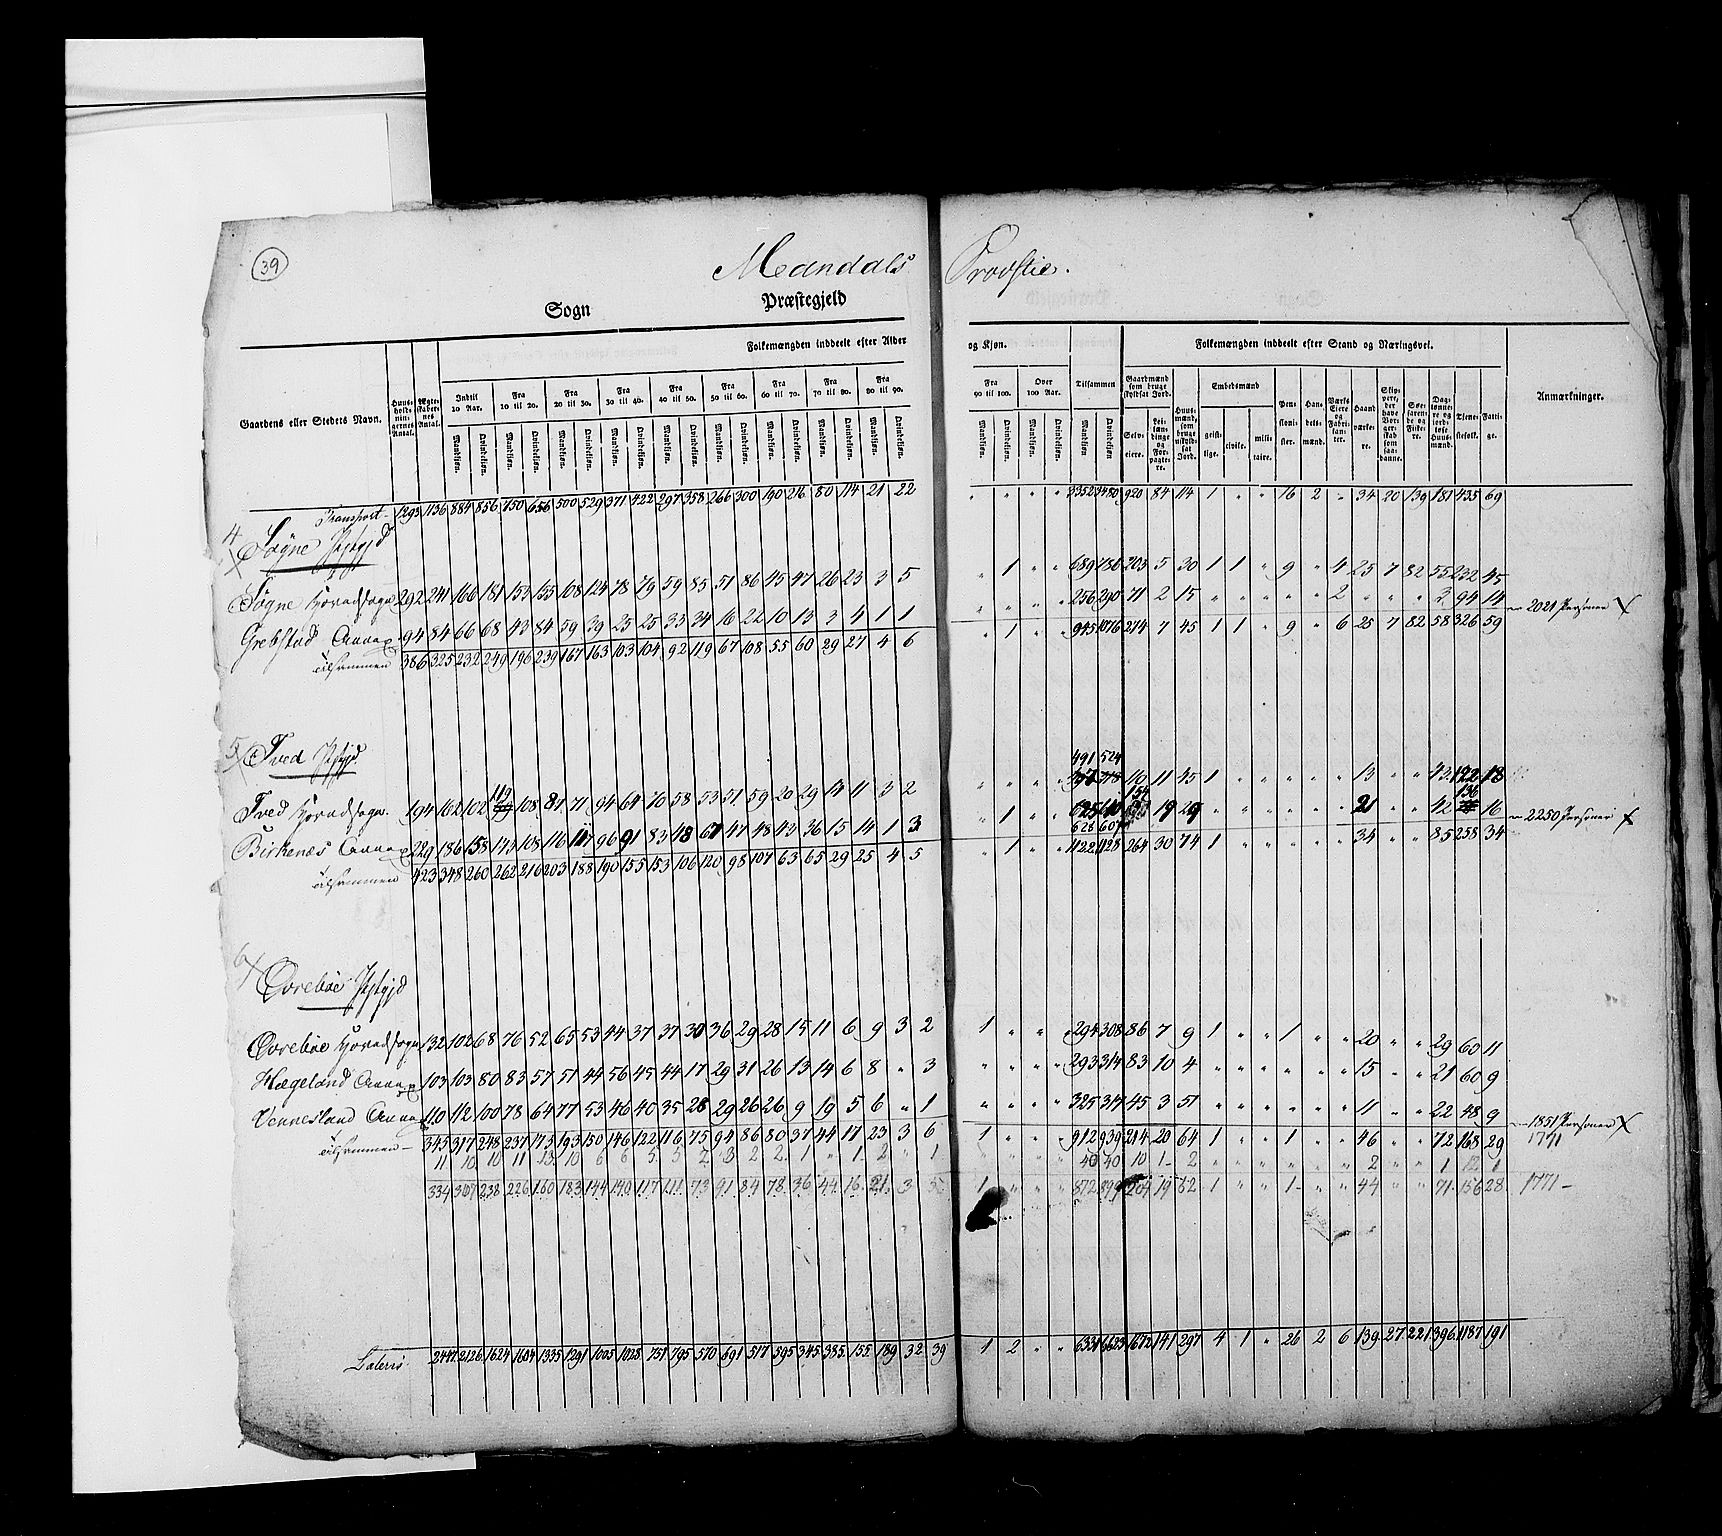 39
Mandals Provstie.
Sogn Præstegjeld
Folkemængden inddeelt efter Alder og Kjøn.
Folkemængden inddeelt efter Stand og Næringsvei.
Gaardens eller Stedets Navn.
Huusholdningernes Antal.
Ægteskabernes Antal.
Indtil 10 Aar.
Fra 10 til 20.
Fra 20 til 30.
Fra 30 til 40.
Fra 40 til 50.
Fra 50 til 60.
Fra 60 til 70.
Fra 70 til 80.
Fra 80 til 90.
Fra 90 til 100.
Over 100 Aar.
Tilsammen
Mandkjøn. Qvindekjøn.
Gaardmænd som bruge skyldsat Jord.
Selveiere.
Leilændinge og Forpagtere.
Huusmænd, som bruge uskyldsat Jord.
Embedsmænd
geistlige. civile. militaire.
Pensionister.
Handelsmænd.
Værks Eiere og Fabrikanter.
Haandværkere.
Skippere, der have Borgerskab som saadanne.
Søefarende og Fiskere.
Daglønnere og jordløse Huusmænd.
Tjenestefolk.
Fattige.
Anmærkninger.
Transport 1293 1136 884 856 750 656 500 529 371 422 297 358 266 300 190 216 80 114 21 22 " " " " 3352 3480 920 84 114 1 " " 16 2 " 34 20 139 181 435 69
4
Søgne Pstgjd
Søgne Hovedsogn 292 241 166 181 153 155 108 124 78 79 59 85 51 86 45 47 26 23 3 5 " 1 " " 689 786 203 5 30 1 1 " 9 " 4 25 7 82 55 232 45
Grebstad Annex 94 84 66 68 43 84 59 39 25 25 33 34 16 22 10 13 3 4 1 1 " " " " 256 290 71 2 15 " " " " " 2 " " " 3 94 14
2021 Personer X
Tilsammen 386 325 232 249 196 239 167 163 103 104 92 119 67 108 55 60 29 27 4 6 " 1 " " 945 1076 274 7 45 1 1 " 9 " 6 25 7 82 58 326 59
5
Tved Pstgjd
491 524
Tved Hovedsogn 194 162 102 119 108 87 71 94 64 70 58 53 51 59 20 29 14 11 3 2 " " " " 110 11 45 1 " " " " " 13 " " 43 122 18
154 136
Birkenæs Annex 229 186 158 143 108 116 117 96 91 83 48 67 47 48 43 36 15 14 1 3 " 1 " " 19 29 " " " " " " 21 " " 42 16
2250 Personer X
Tilsammen 423 348 260 262 216 203 188 190 155 153 106 120 98 107 63 65 29 25 4 5 " 1 " " 1122 1128 264 30 74 1 " " " " " 34 " " 85 258 34
6
Øvrebøe Pstgjd
Øvrebøe Hovedsogn 132 102 68 76 52 65 53 44 37 37 30 36 29 28 15 11 6 9 3 2 1 " " 294 308 86 7 9 1 " " 1 " " 20 " " 29 60 11
Hægeland Annex 103 103 80 83 57 51 44 56 45 44 17 29 31 26 13 14 6 8 " 3 " " " " 293 314 83 10 4 " " " " " " 15 " " 21 60 9
Vennesland Annex 110 112 100 78 64 77 53 46 40 35 28 29 26 26 9 19 5 6 " 1 " " " " 325 317 45 3 51 " " " " " " 11 " " 22 48 9
1851 Personer X
Tilsammen 345 317 248 237 173 193 150 146 122 116 75 94 86 80 37 44 17 23 3 6 1 " " " 912 939 214 20 64 1 " " 1 " " 46 " " 72 168 29 1771
11 10 10 11 13 10 6 6 5 5 2 3 2 2 1 " 1 2 " 1 40 40 10 1 2 " " " " " " 2 " " 1 12 1
334 307 238 226 160 183 144 140 117 111 73 91 84 78 36 44 16 21 3 5 1 " " " 872 899 204 19 62 1 " " 1 " " 44 " " 71 156 28 1771
Lateris 2447 2126 1624 1604 1335 1291 1005 1028 751 795 570 691 517 595 345 385 155 189 32 39 1 2 " " 6331 6623 1672 141 297 4 1 " 26 2 6 139 27 221 396 1187 191